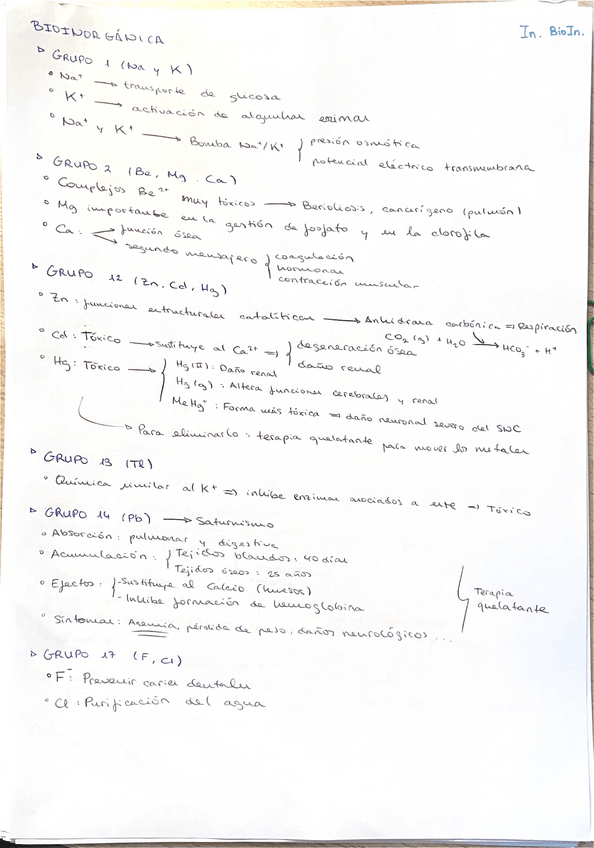 BIOINORGÁNICA
In. BioIn.
▷ GRUPO 1 (Na y K)
° Na⁺ → transporte de glicosa
° K⁺ → activación de algunhas enzimas
° Na⁺ y K⁺ → Bomba Na⁺/K⁺ { presión osmótica
potencial eléctrico transmembrana
▷ GRUPO 2 (Be, Mg, Ca)
° Complejos Be²⁺ muy tóxicos → Beriliosis, cancerígeno (pulmón)
° Mg importante en la gestión de fosfato y en la clorofila
° Ca: función ósea
segundo mensajero { coagulación
hormonas
contracción muscular
▷ GRUPO 12 (Zn, Cd, Hg)
° Zn: funciones estructurales catalíticas → Anhidrasa carbónica ⇒ Respiración
CO₂(g) + H₂O → HCO₃⁻ + H⁺
° Cd: Tóxico → sustituye al Ca²⁺ ⇒ { degeneración ósea
daño renal
° Hg: Tóxico → { Hg(II): Daño renal
Hg(g): Altera funciones cerebrales y renal
MeHg⁺: Forma más tóxica ⇒ daño neuronal severo del SNC
→ Para eliminarlo: terapia quelatante para mover los metales
▷ GRUPO 13 (Tl)
° Química similar al K⁺ ⇒ inhibe enzimas asociados a este ⇒ Tóxico
▷ GRUPO 14 (Pb) → Saturnismo
° Absorción: pulmonar y digestiva
° Acumulación: { Tejidos blandos: 40 días
Tejidos óseos: 25 años
° Efectos: { - Sustituye al Calcio (huesos)
- Inhibe formación de hemoglobina
Terapia
quelatante
° Síntomas: Anemia, pérdida de peso, daños neurológicos ...
▷ GRUPO 17 (F, Cl)
° F⁻: Prevenir caries dentales
° Cl: Purificación del agua